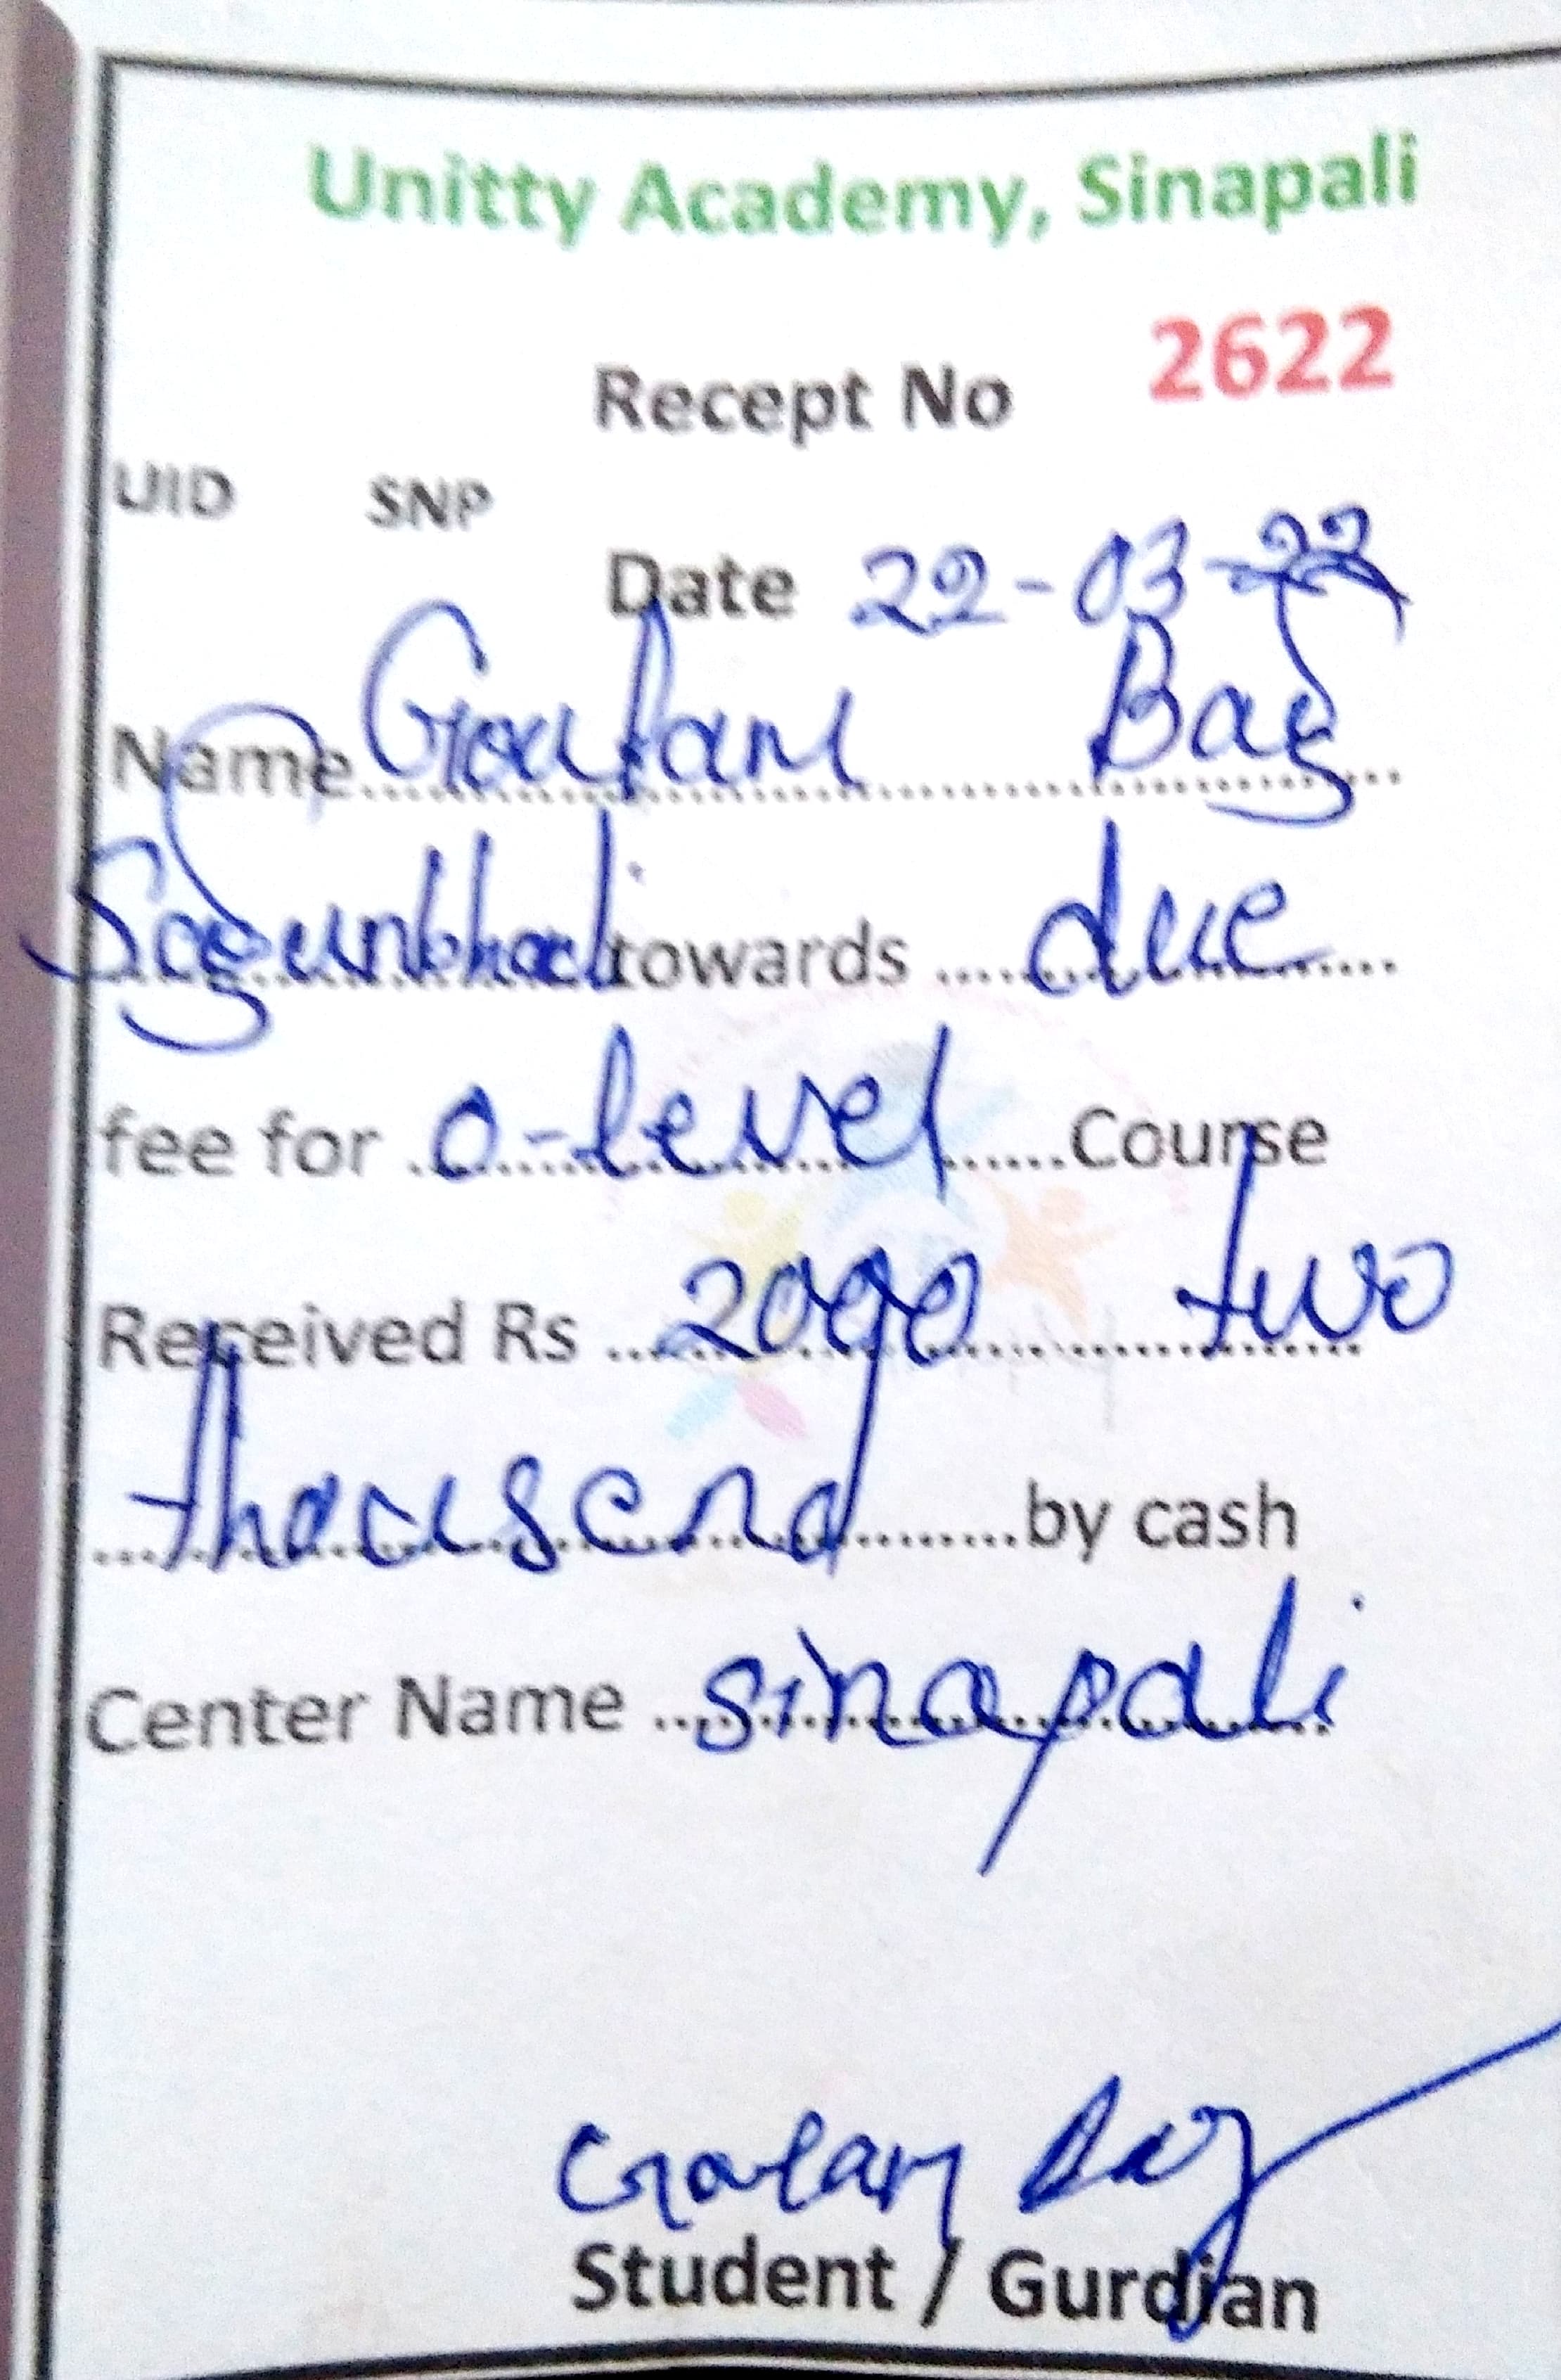 Unitty Academy, Sinapali
Recept No 2622
UID SNP
Date 22-03-22
Name Goutam Bag
Sagunbhadi towards due
fee for O-level Course
Received Rs 2000 two
thousend by cash
Center Name sinapali
Goutam Bag
Student / Gurdian